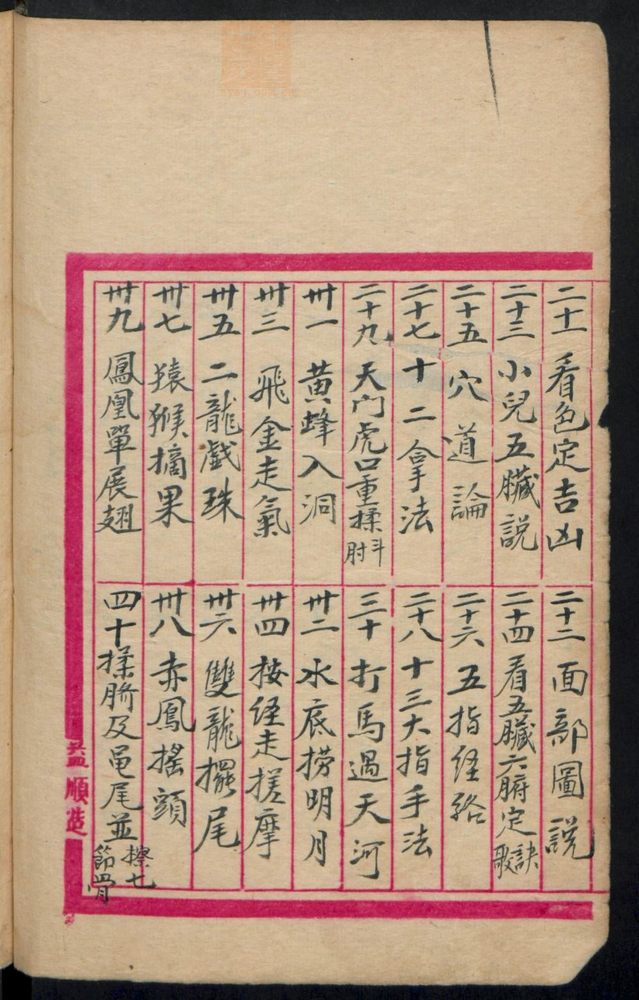 二十一 看色定吉凶
二十二 面部圖説
二十三 小兒五臟説
二十四 看五臟六腑定訣歌
二十五 穴道論
二十六 五指経絡
二十七 十二拿法
二十八 十三大指手法
二十九 天门虎口重揉斗肘
三十 打馬過天河
卅一 黄蜂入洞
卅二 水底撈明月
卅三 飛金走氣
卅四 按経走搓摩
卅五 二龍戲珠
卅六 雙龍擺尾
卅七 猿猴摘果
卅八 赤鳳搖頭
卅九 鳳凰單展翅
四十 揉臍及黾尾並擦七節骨
順造